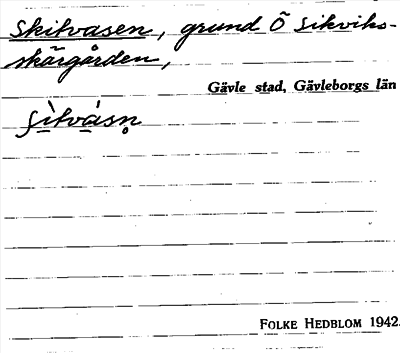 Skitvasen, grund Ö Sikviks-
skärgården,
Gävle stad, Gävleborgs län
ʃìtvàsn̥
FOLKE HEDBLOM 1942.